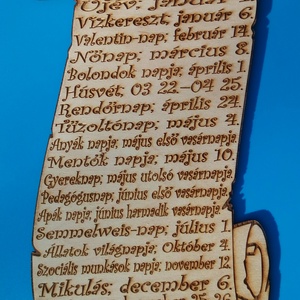 Újév; január 1.
Vízkereszt; január 6.
Valentin-nap; február 14.
Nőnap; március 8.
Bolondok napja; április 1
Húsvét; 03 22.-04 25.
Rendőrnap; április 24.
Tűzoltónap; május 4.
Anyák napja; május első vasárnapja.
Mentők napja; május 10.
Gyereknap; május utolsó vasárnapja.
Pedagógusnap; június első vasárnapja.
Apák napja; június harmadik vasárnapja.
Semmelweis-nap; július 1.
Állatok világnapja; Október 4.
Szociális munkások napja; november 12.
Mikulás; december 6.